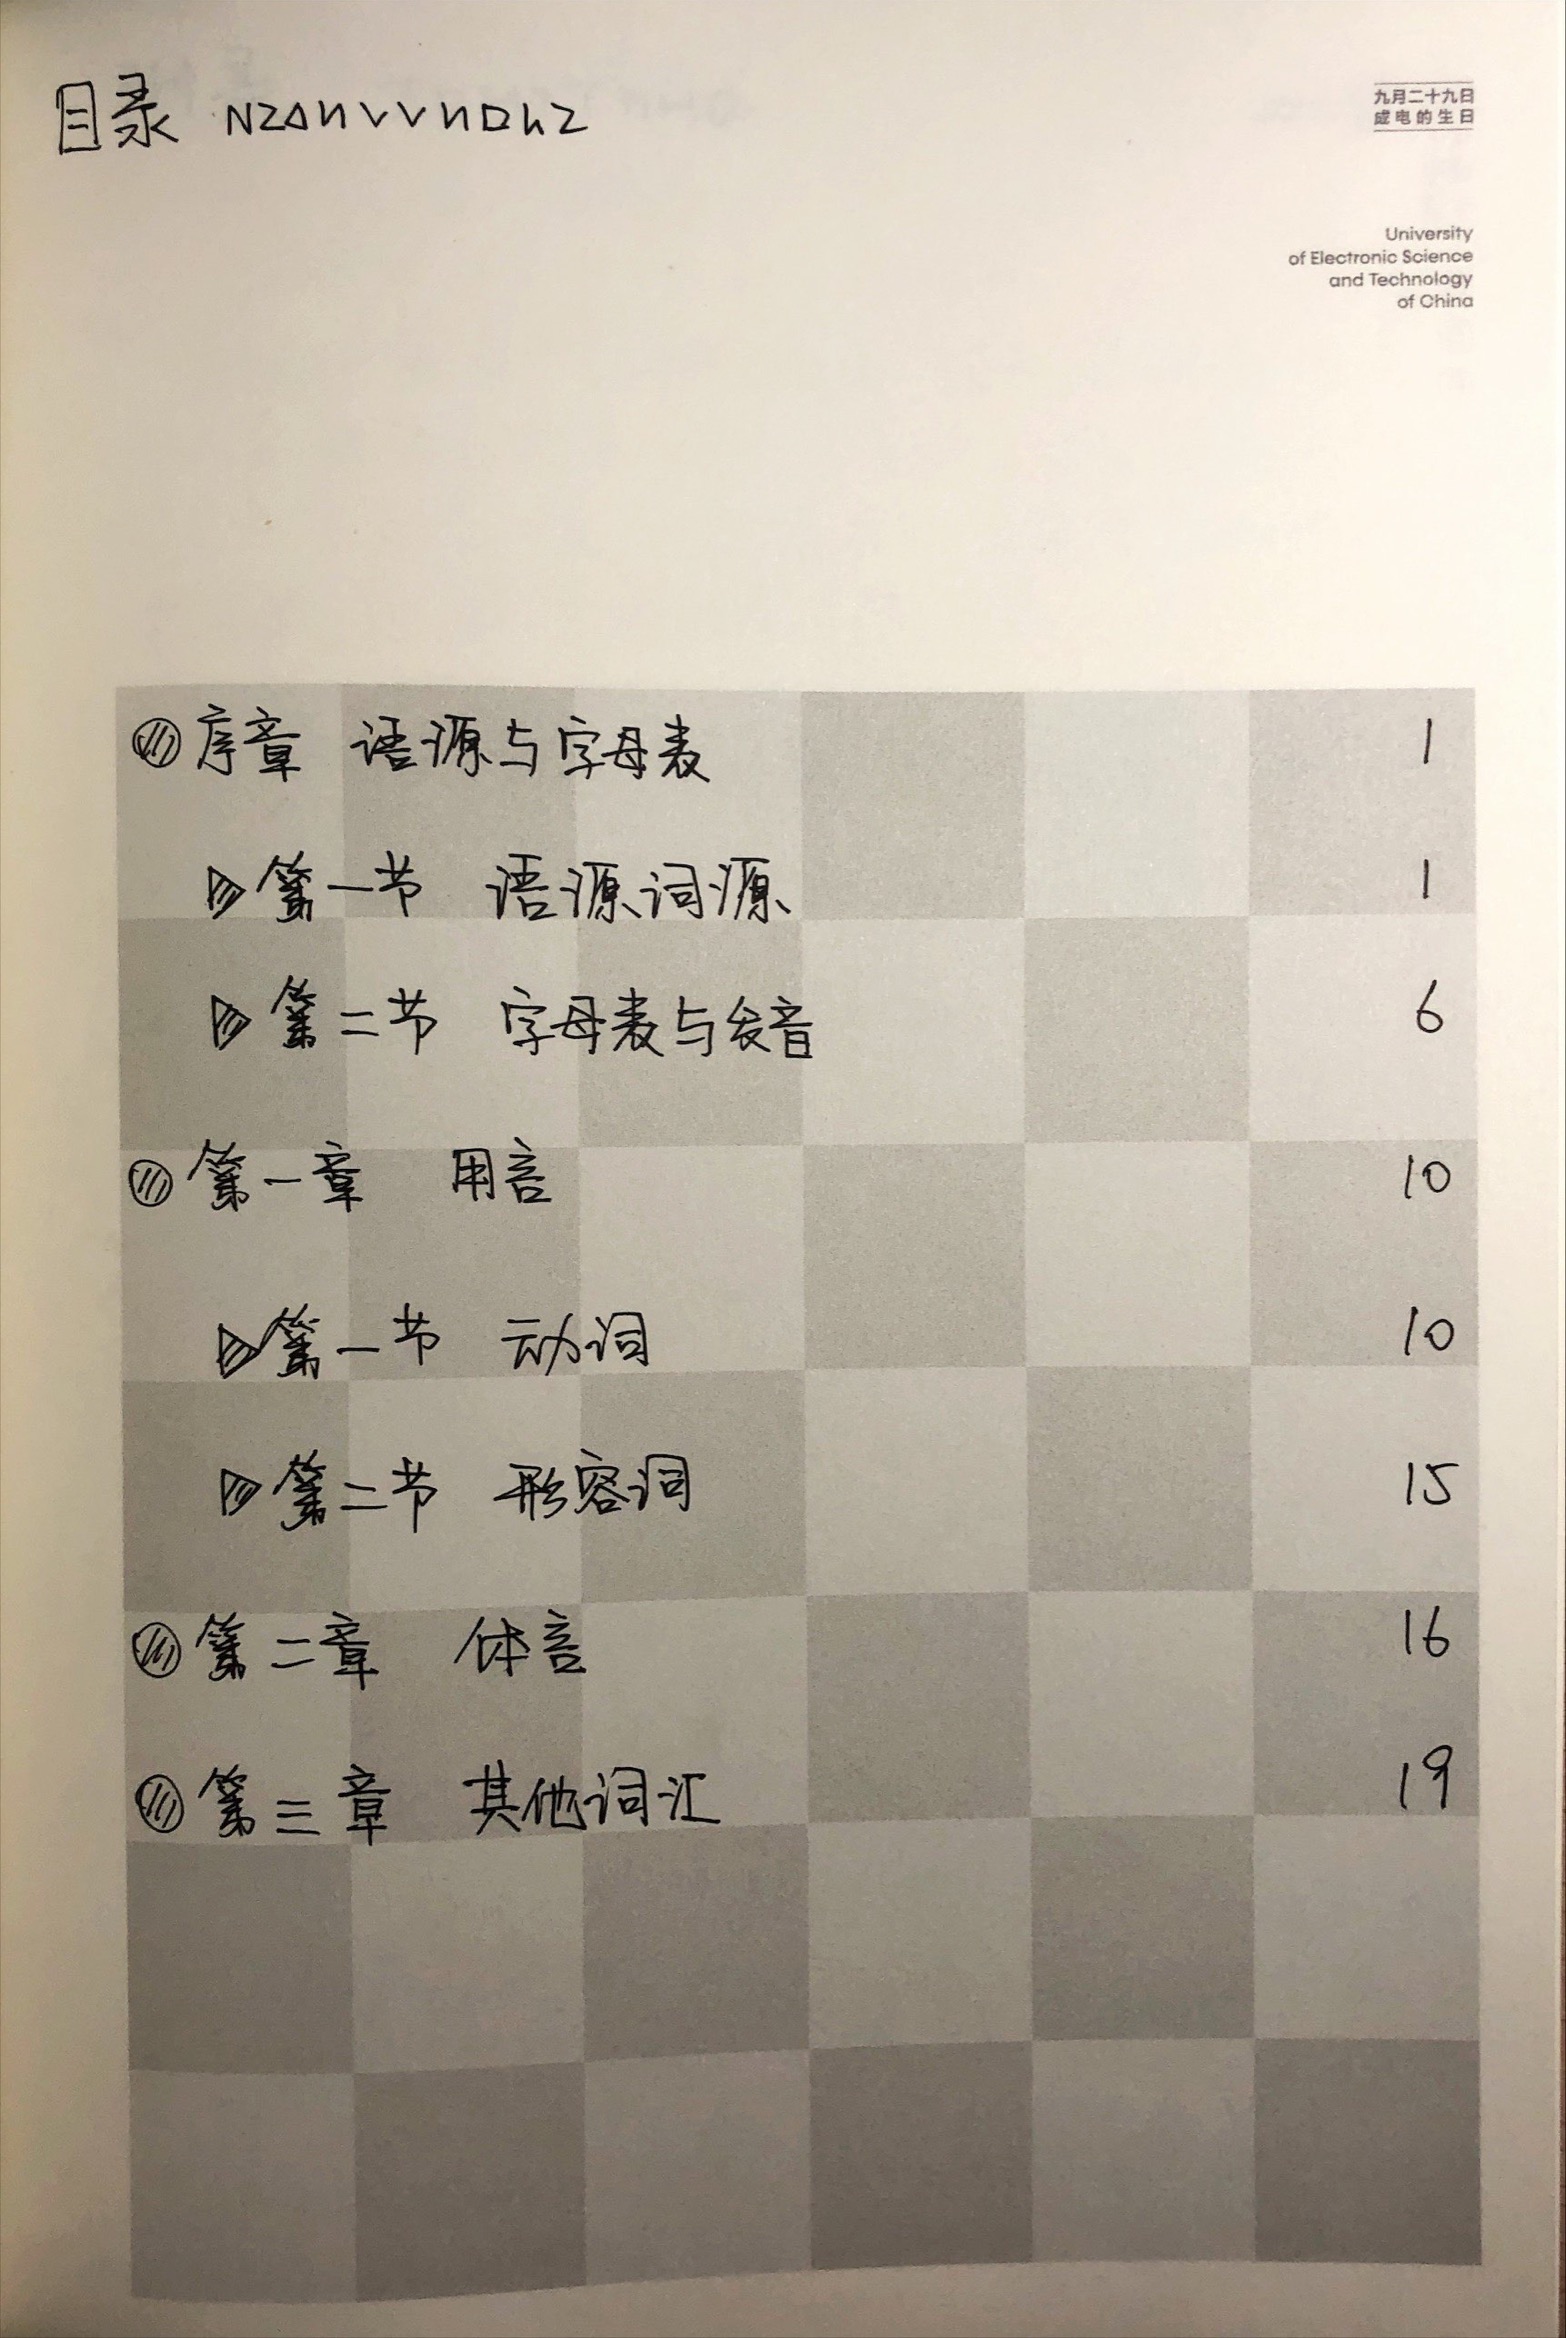 目录
九月二十九日
成电的生日
University
of Electronic Science
and Technology
of China
序章 语源与字母表 1
第一节 语源词源 1
第二节 字母表与发音 6
第一章 用言 10
第一节 动词 10
第二节 形容词 15
第二章 体言 16
第三章 其他词汇 19